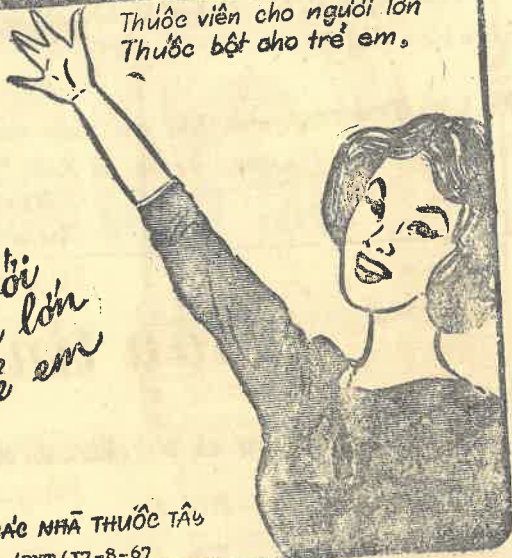 Thuốc viên cho người lớn
Thuốc bột cho trẻ em.
lớn
em
NHÀ THUỐC TÂY
17-8-67